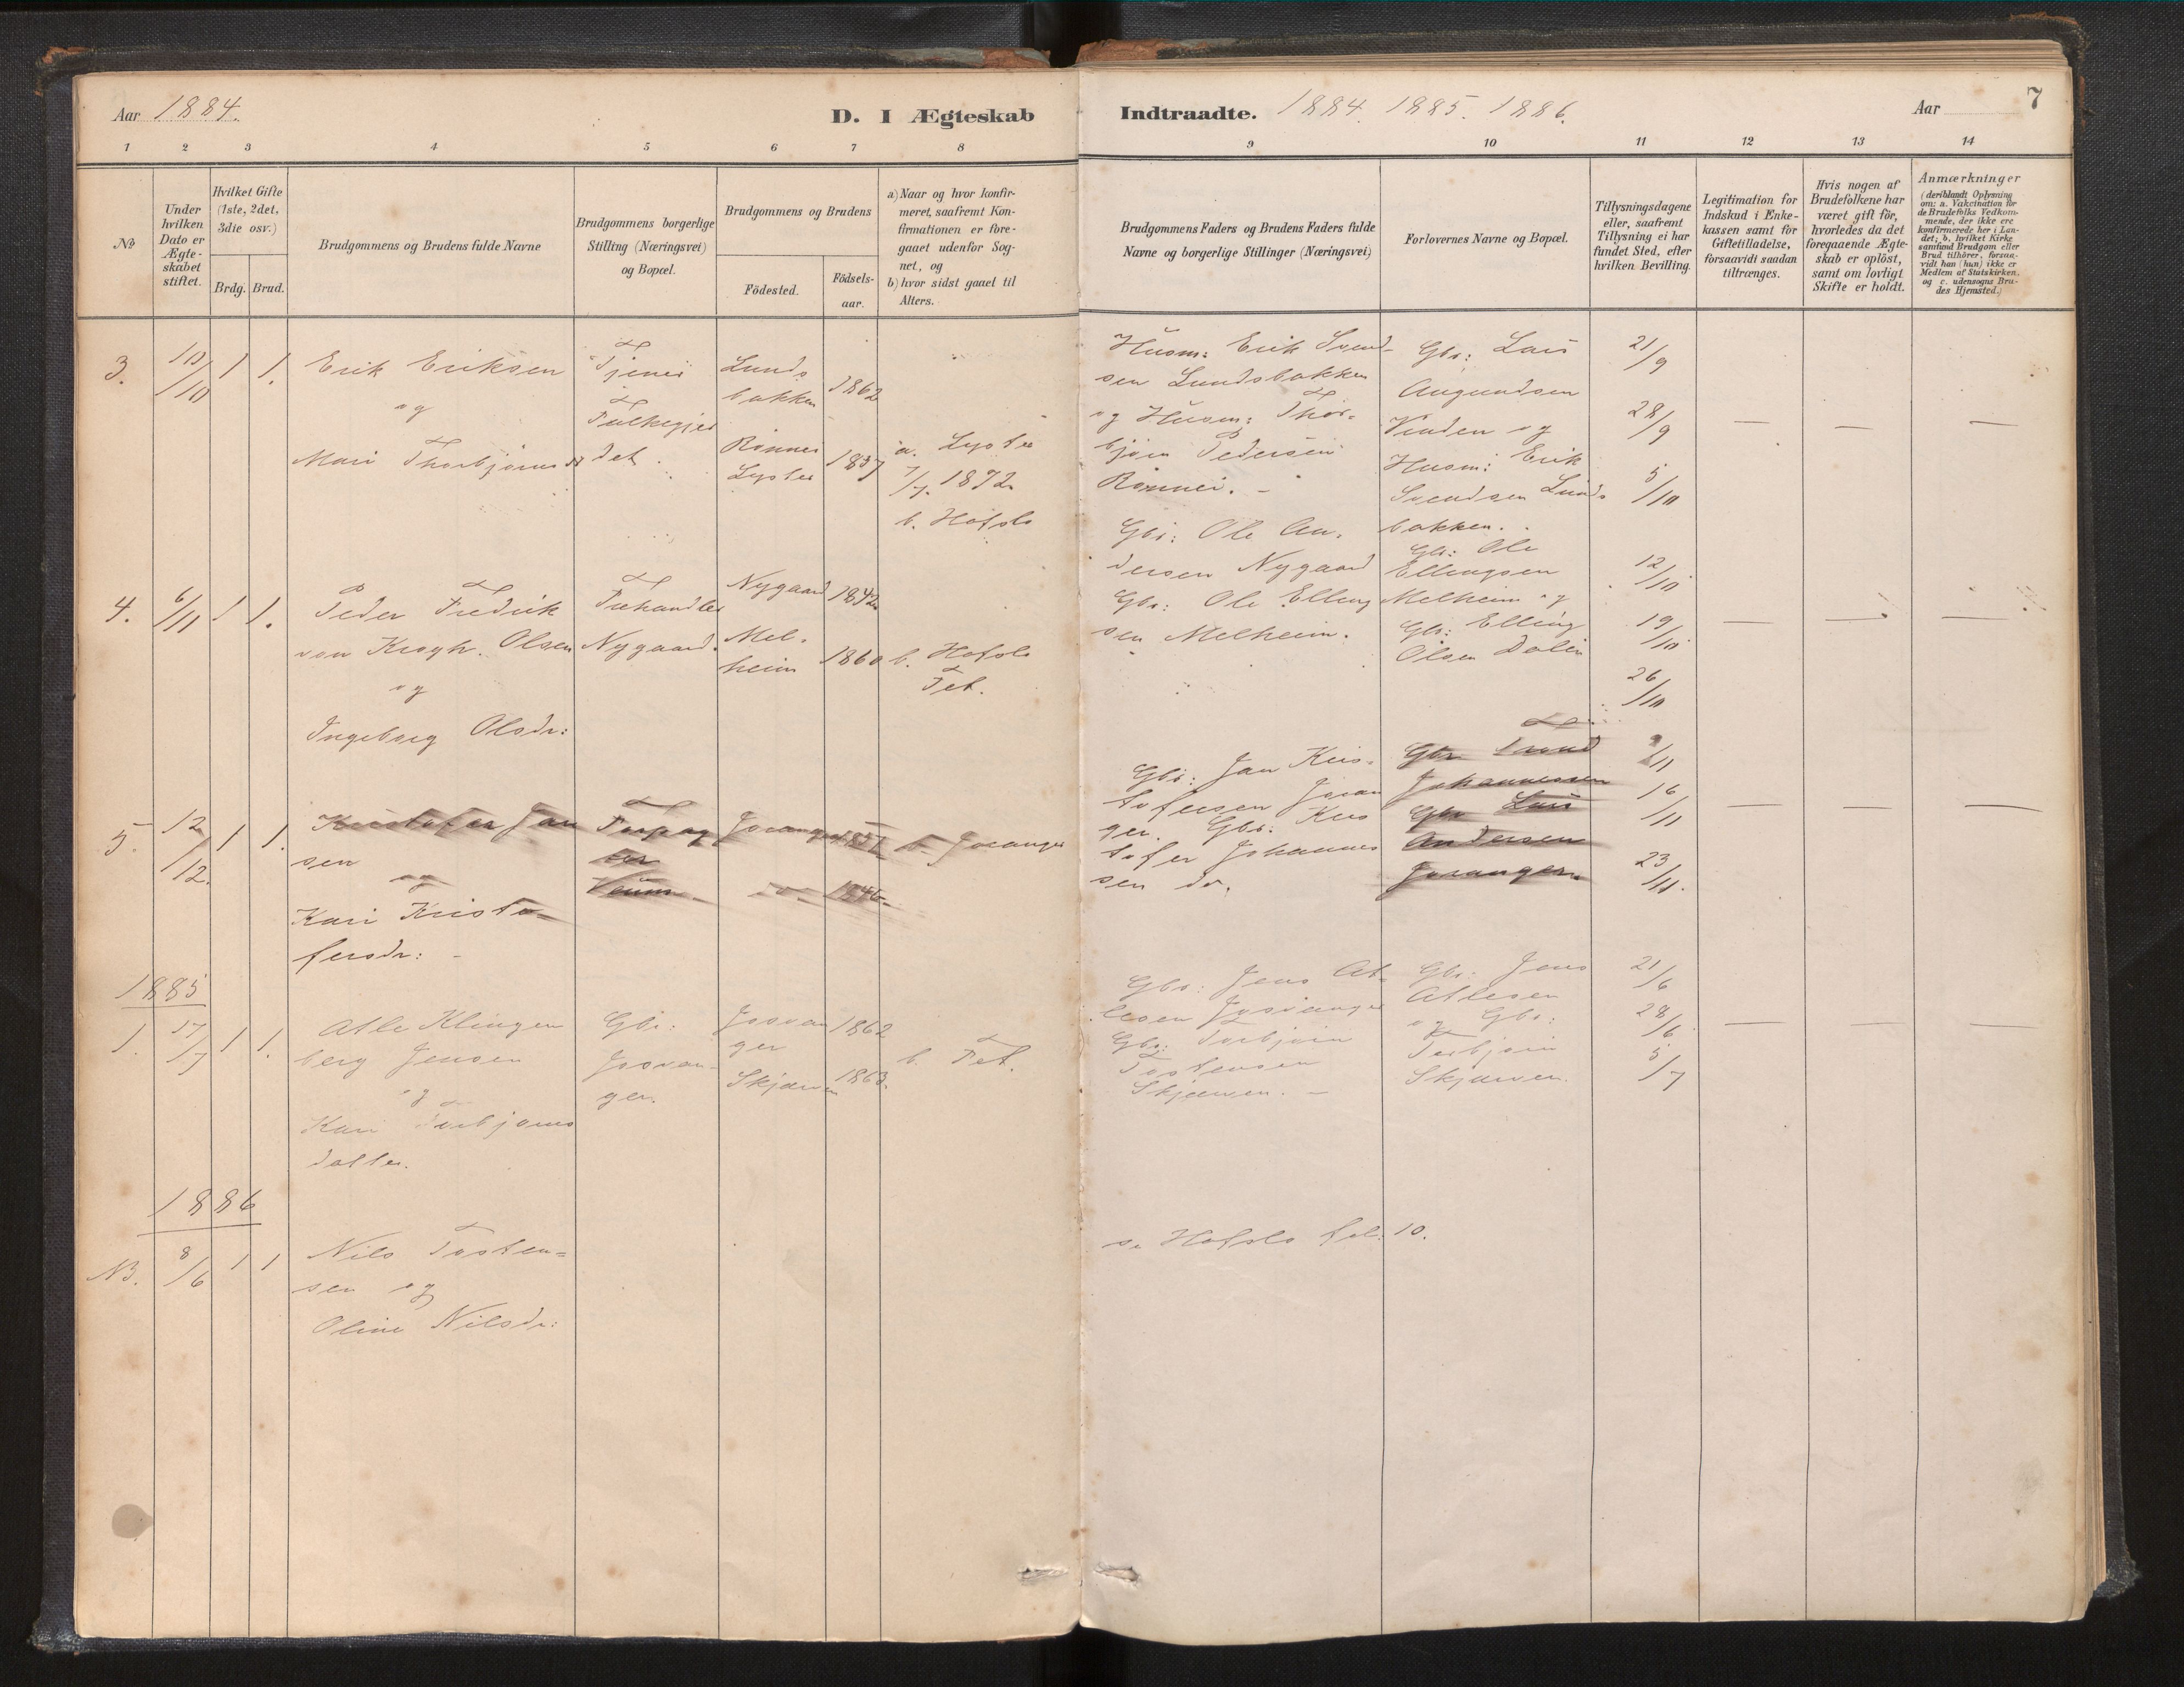 Aar 1884.
D. I Ægteskab
Indtraadte. 1884. 1885. 1886.
Aar
7
1 2 3 4 5 6 7 8 9 10 11 12 13 14
No
Under hvilken Dato er Ægte-skabet stiftet.
Hvilket Gifte (1ste, 2det, 3die osv.)
Brdg. Brud.
Brudgommens og Brudens fulde Navne
Brudgommens borgerlige
Stilling (Næringsvei)
og Bopæl.
Brudgommens og Brudens
Födested.
Födsels-
aar.
a) Naar og hvor konfir-
meret, saafremt Kon-
firmationen er fore-
gaaet udenfor Sog-
net, og
b) hvor sidst gaaet til
Alters.
Brudgommens Faders og Brudens Faders fulde
Navne og borgerlige Stillinger (Næringsvei)
Forlovernes Navne og Bopæl.
Tillysningsdagene
eller, saafremt
Tillysning ei har
fundet Sted, efter
hvilken Bevilling.
Legitimation for
Indskud i Enke-
kassen samt for
Giftetilladelse,
forsaavidt saadan
tiltrænges.
Hvis nogen af
Brudefolkene har
været gift för,
hvorledes da det
foregaaende Ægte-
skab er oplöst,
samt om lovligt
Skifte er holdt.
Anmærkninger
(deriblandt Oplysning
om: a. Vakcination for
de Brudefolks Vedkom-
mende, der ikke ere
konfirmerede her i Lan-
det; b. hvilket Kirke
samfund Brudgom eller
Brud tilhörer, forsaa-
vidt han (hun) ikke er
Medlem af Statskirken,
og c. udensogns Bru-
des Hjemsted.)
3. 10/10 1 1.
Erik Eriksen
og
Mari Thorbjörnsd
Tjener
Falkegjer
det.
Lunds
bakken 1862
Rönnei
Lyster 1857
a. Lyster
7/7. 1872
b. Hafslo
Husm: Erik Svend-
sen Lundsbakken
og Husm: Thor-
björn Pedersen
Rönnei. -
Gbr: Lars
Augundsen
Vinden og
Husm: Erik
Svendsen Lunds
bakken.
21/9
28/9
5/10
4. 6/11 1 1.
Peder Fredrik
von Krogh. Olsen
og
Ingeborg Olsdr:
Frehandler
Nygaard.
Nygaard 1842
Mel-
heim 1860
b. Hafslo
Fet.
Gbr: Ole An-
dersen Nygaard
Gbr: Ole Elling
sen Melheim.
Gbr: Ole
Ellingsen
Melheim og
Gbr: Elling
Olsen Dalen
12/10
19/10
26/10
5. 12/12. 1 1.
Kristofer Jan
sen
og
Kari Kristo-
fersdr: -
Joranger 1857
1846
b. Joranger
Gbr: Jan Kris-
tofersen Joran
ger. Gbr: Kris
tofer Johannes
sen do.
Gbr Trond
Johannessen
Gbr Lars
Andersen
Joranger
9/11
16/11
23/11.
1885
1. 17/7 1 1.
Atle Klingen
berg Jensen
og
Kari Torbjörns
datter.
Gbr:
Josvan-
ger.
Josvan
ger 1862
Skjærven 1863.
b. Fet.
Gbr: Jens At-
lesen Josvanger
Gbr: Torbjörn
Tostensen
Skjærven. -
Gbr. Jens
Atlesen
og Gbr:
Torbjörn
Skjærven.
21/6
28/6
5/7
1886
NB. 8/6 1 1
Nils Tosten-
sen og
Oline Nilsdr:
s. Hafslo fol: 10.